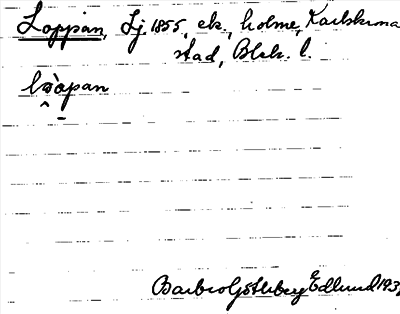 Loppan, Lj. 1855, ek., holme, Karlskrona
stad, Blek. l.
lòpan
Barbro Götlberg Edlund 193